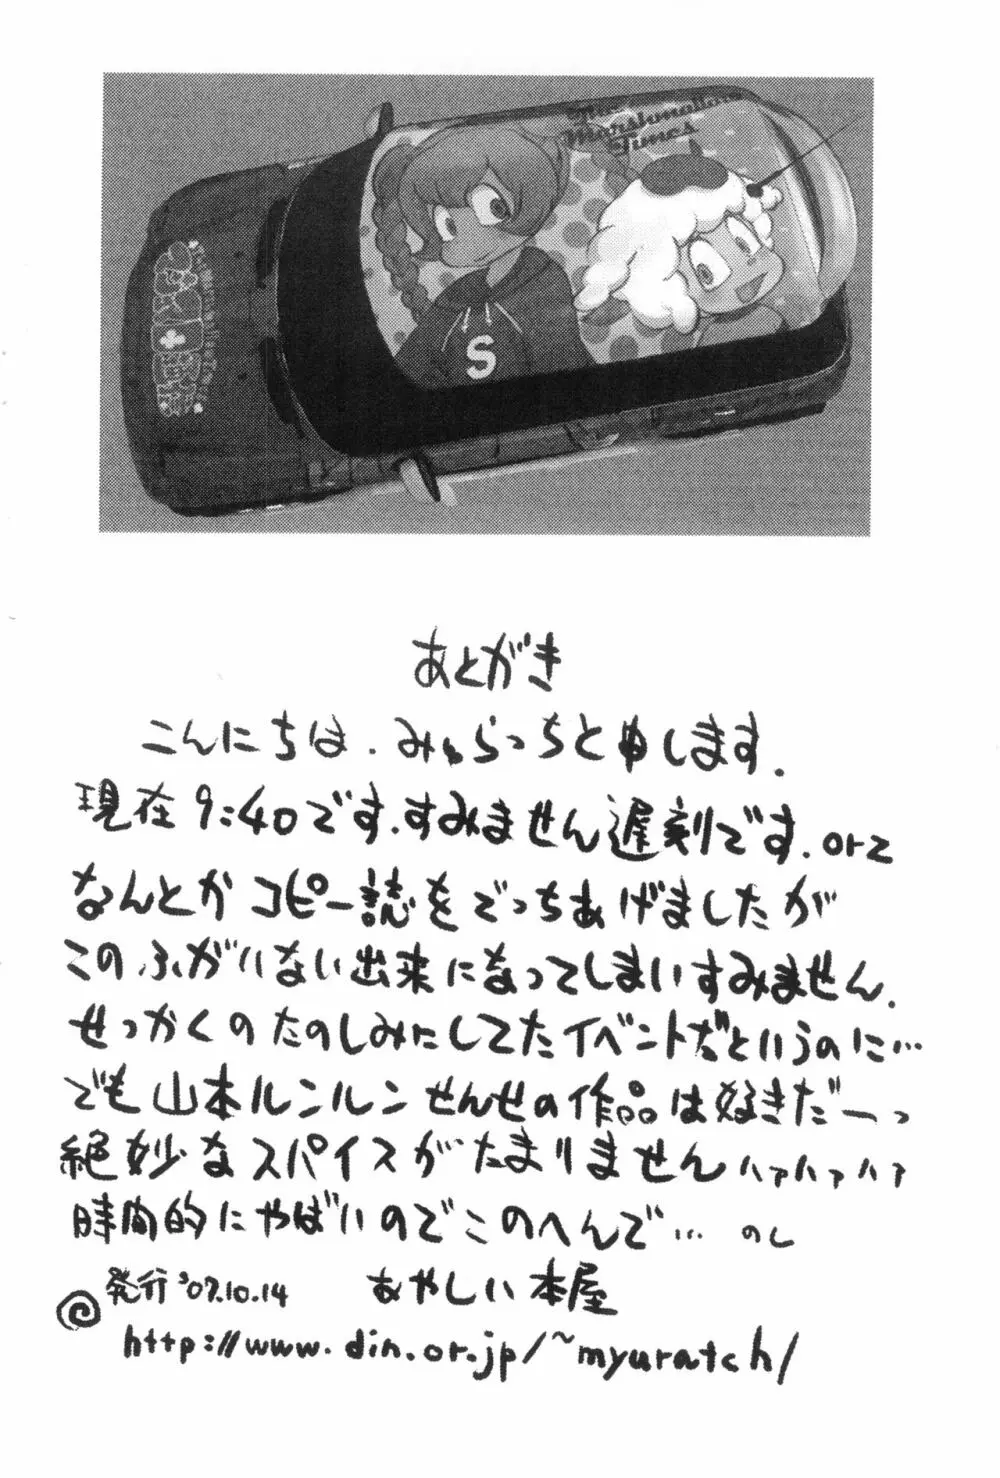 The
Marshmallow
Times
S
あとがき
こんにちは、みゅらっちと申します.
現在9:40です.すみません遅刻です.orz
なんとかコピー誌をでっちあげましたが
このふがいない出来になってしまいすみません.
せっかくのたのしみにしてたイベントだというのに…
でも山本ルンルンせんせの作品は好きだーっ
絶妙なスパイスがたまりませんハァハァハァ
時間的にやばいのでこのへんで… のし
発行 '07.10.14 あやしい本屋
http://www.din.or.jp/~myuratch/